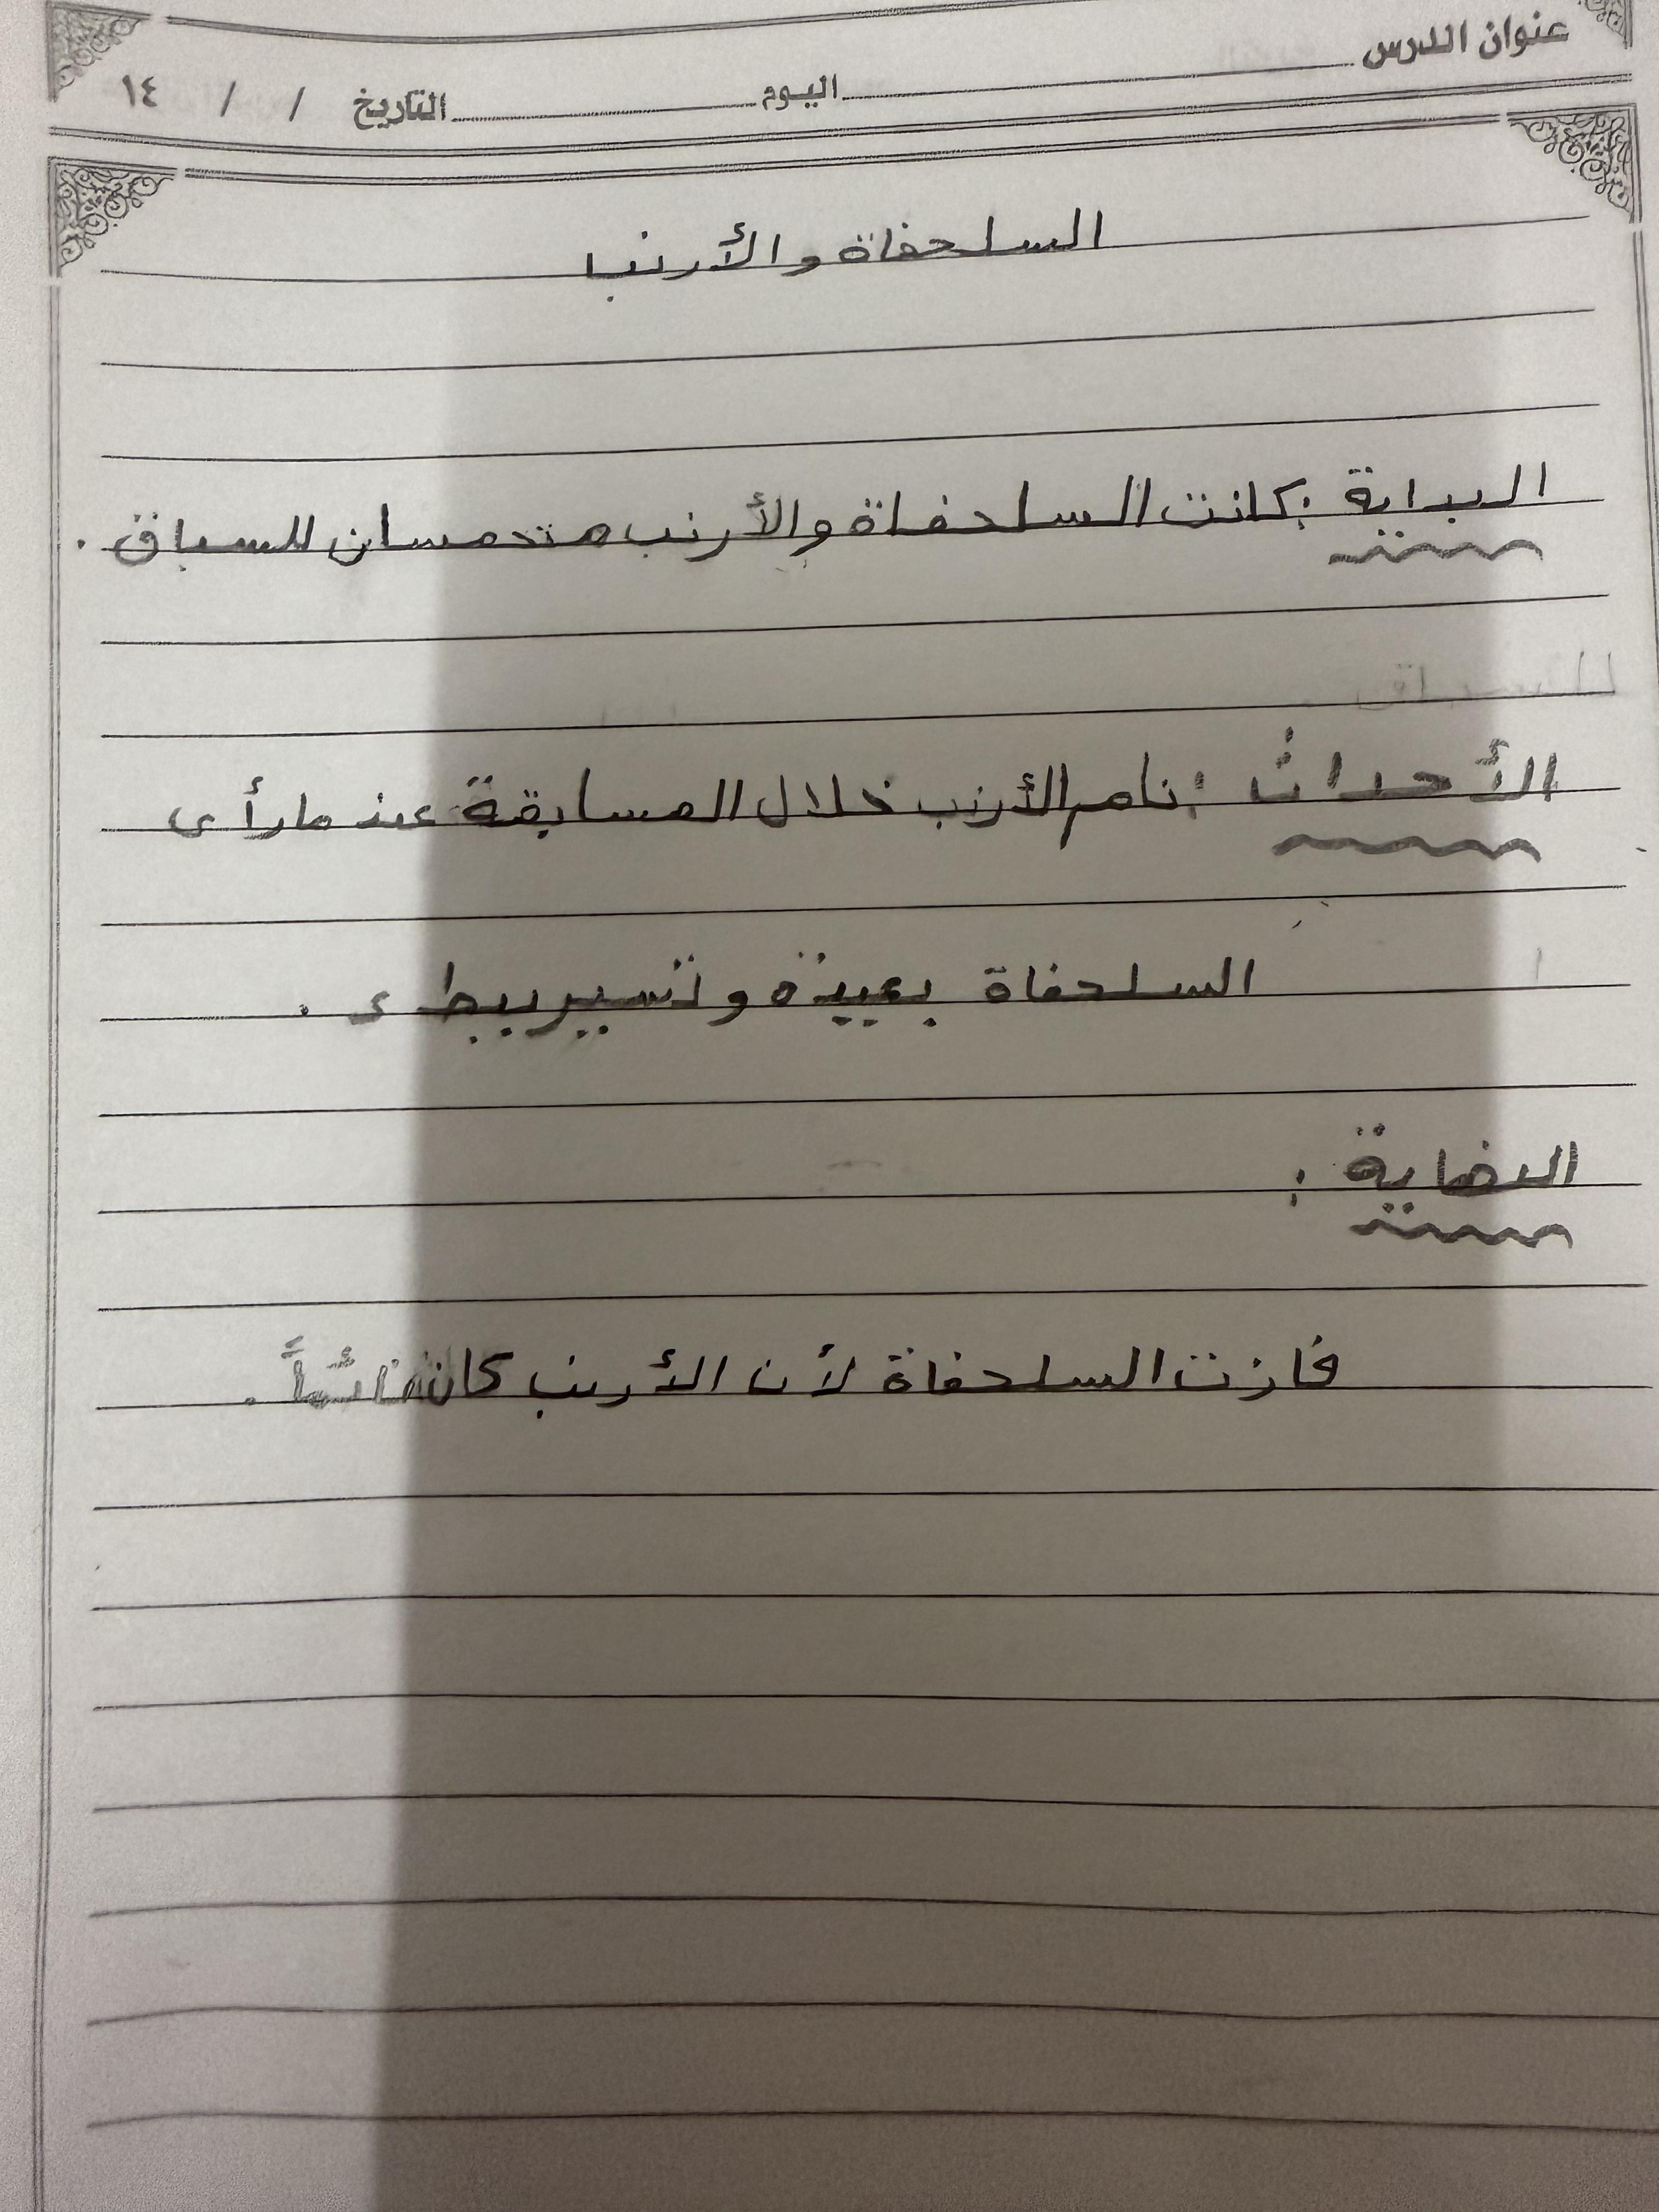 عنوان الدرس
اليوم التاريخ / / ١٤
السلحفاة والأرنب
البداية : كانت السلحفاة والأرنب متحمسان للسباق .
الأحداث : نام الأرنب خلال المسابقة عندما رأى
السلحفاة بعيدة وتسير ببطء .
النهاية :
فازت السلحفاة لأن الأرنب كان نائماً .